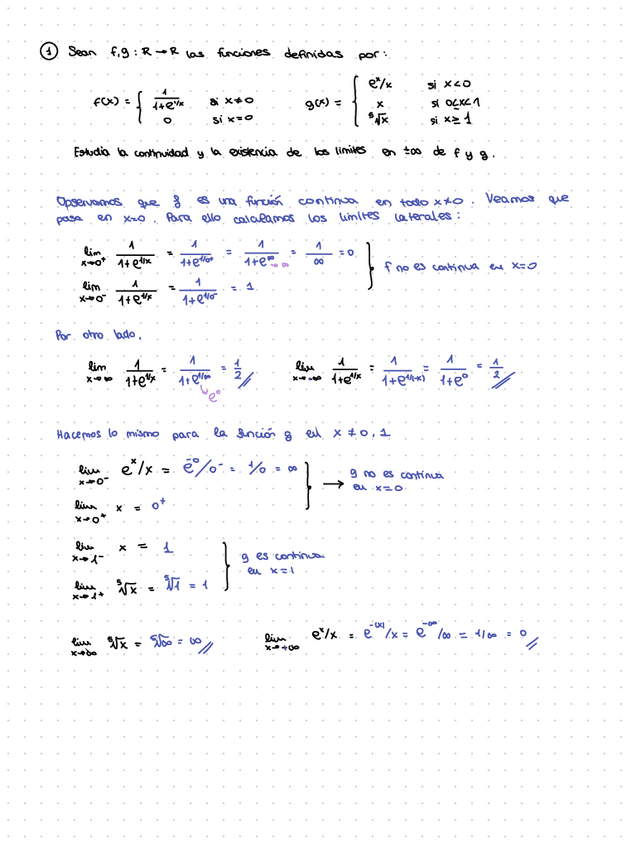 ① Sean f,g : R → R las funciones definidas por:
f(x) = { 1/(1+e^(1/x)) si x≠0
0 si x=0
g(x) = { e^x/x si x<0
x si 0≤x<1
⁵√x si x≥1
Estudia la continuidad y la existencia de los límites en ±∞ de f y g.
Observamos que f es una función continua en todo x≠0. Veamos que
pasa en x=0. Para ello calculamos los límites laterales:
lim x→0⁺ 1/(1+e^(1/x)) = 1/(1+e^(1/0⁺)) = 1/(1+e^∞) →∞ = 1/∞ = 0
lim x→0⁻ 1/(1+e^(1/x)) = 1/(1+e^(1/0⁻)) = 1
} f no es continua en x=0
Por otro lado,
lim x→∞ 1/(1+e^(1/x)) = 1/(1+e^(1/∞)) = 1/2 //
↳ e⁰
lim x→-∞ 1/(1+e^(1/x)) = 1/(1+e^(1/(-x))) = 1/(1+e⁰) = 1/2 //
Hacemos lo mismo para la función g en x ≠ 0,1
lim x→0⁻ e^x/x = e^-0/0⁻ = 1/0 = ∞
lim x→0⁺ x = 0⁺
} → g no es continua
en x=0
lim x→1⁻ x = 1
lim x→1⁺ ⁵√x = ⁵√1 = 1
} g es continua
en x=1
lim x→∞ ⁵√x = ⁵√∞ = ∞ //
lim x→+∞ e^x/x = e^-(x)/x = e^-∞/∞ = 1/∞ = 0 //